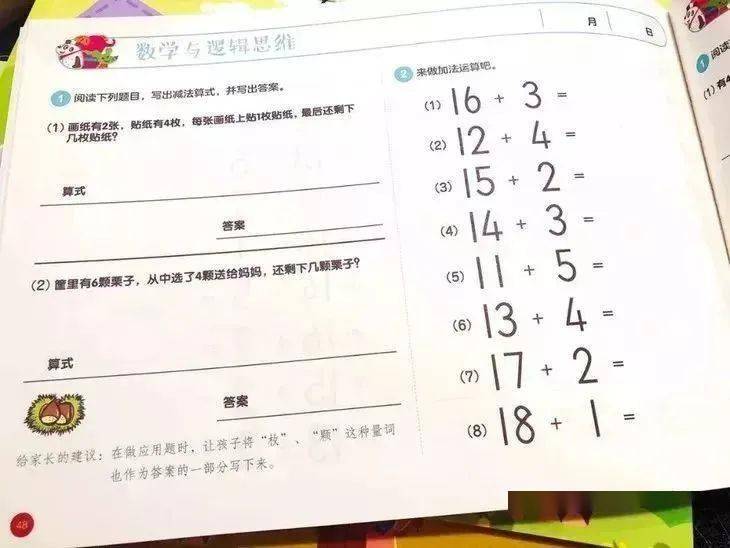 数学与逻辑思维
月
日
1 阅读下列题目，写出减法算式，并写出答案。
(1) 画纸有2张，贴纸有4枚，每张画纸上贴1枚贴纸，最后还剩下
几枚贴纸？
算式
答案
(2) 筐里有6颗栗子，从中选了4颗送给妈妈，还剩下几颗栗子？
算式
答案
给家长的建议：在做应用题时，让孩子将“枚”、“颗”这种量词
也作为答案的一部分写下来。
48
2 来做加法运算吧。
(1) 16 + 3 =
(2) 12 + 4 =
(3) 15 + 2 =
(4) 14 + 3 =
(5) 11 + 5 =
(6) 13 + 4 =
(7) 17 + 2 =
(8) 18 + 1 =
1 阅读
(1) 有4